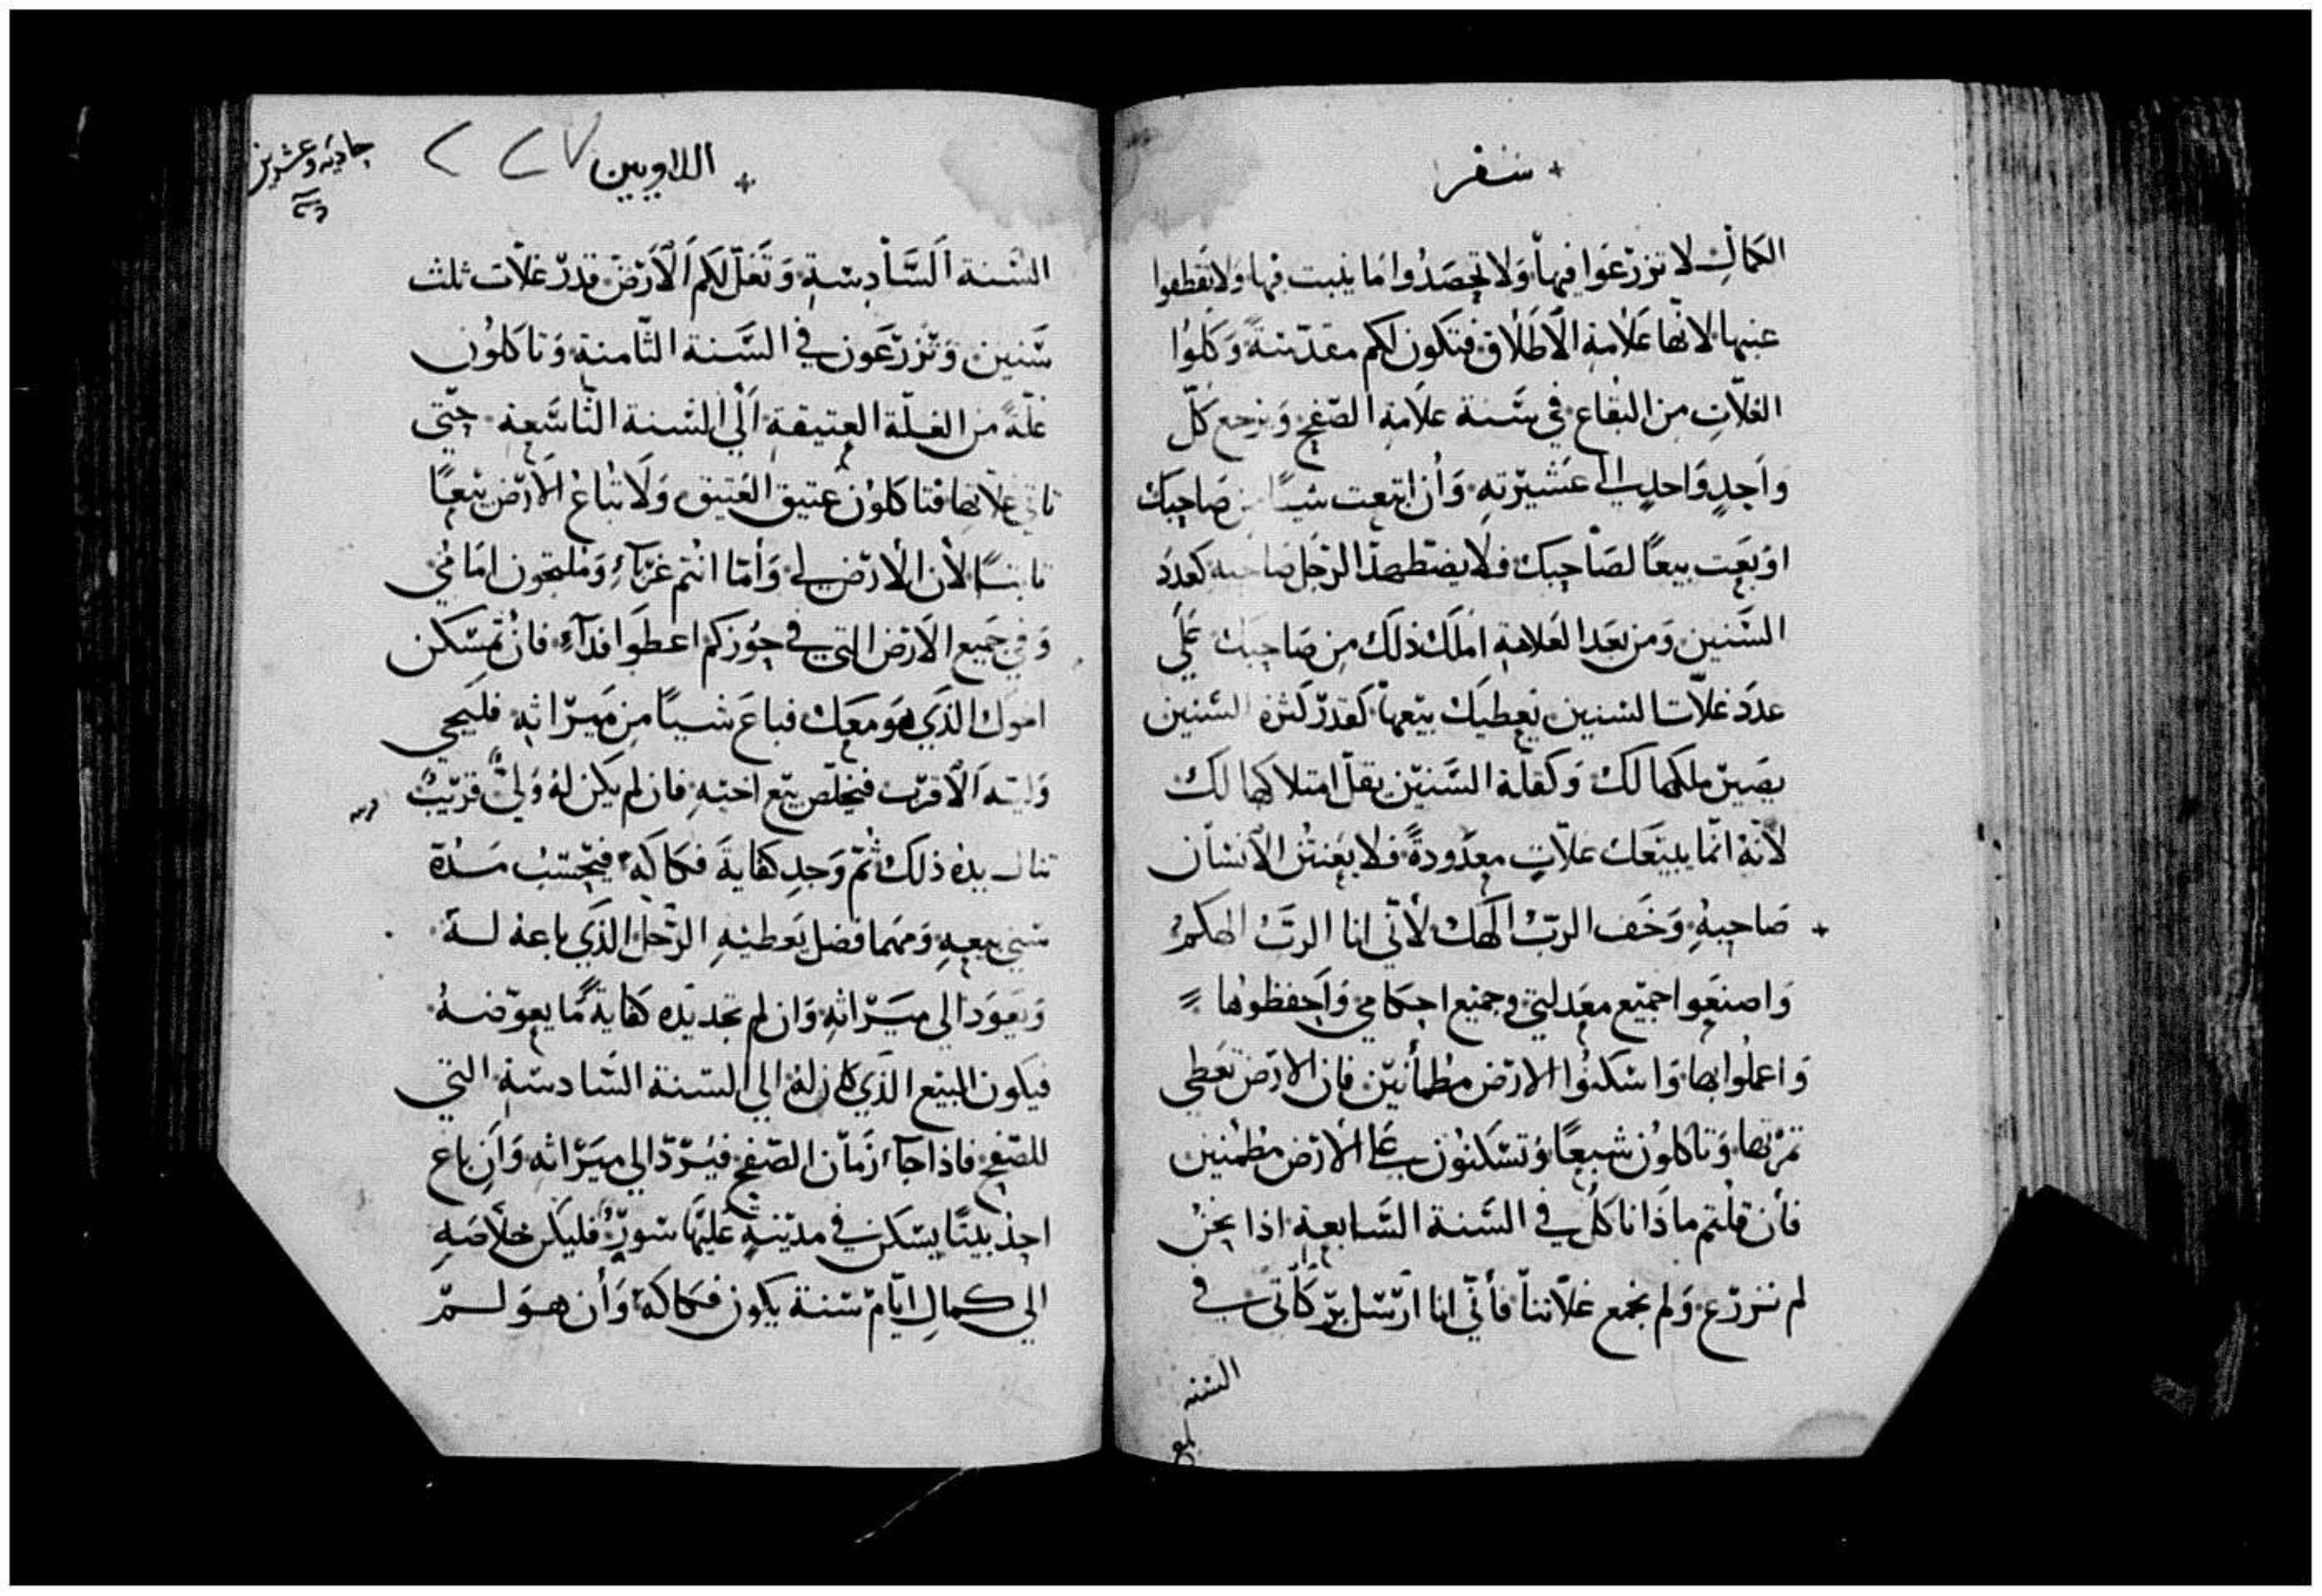 سفر
الكمال لا تزرعوا فيها ولا تحصدوا ما ينبت فيها ولا تقطفوا
عنبها لانها علامة الاطلاق فتكون لكم مقدسة وكلوا
الغلات من البقاع في سنة علامة الصفح ويرجع كل
واحدٍ واحدٍ الى عشيرته وان ابتعت شياً من صاحبك
او بعت بيعاً لصاحبك فلا يضطهد الرجل صاحبه كعدد
السنين ومن بعد العلامة املك ذلك من صاحبك على
عدد غلات السنين يعطيك بيعها كقدر كثرة السنين
يصير ملكها لك وكقلة السنين يقل امتلاكها لك
لانه انما يبيعك غلاتٍ معدودةً فلا يعنتن الانسان
صاحبه وخف الرب الهك لاني انا الرب الهكم
واصنعوا جميع معدلتي وجميع احكامي واحفظوها
واعملوا بها واسكنوا الارض مطمأنين فان الارض تعطي
ثمرتها وتاكلون شبعاً وتسكنون على الارض مطمئنين
فان قلتم ماذا ناكل في السنة السابعة اذا نحن
لم نزرع ولم نجمع غلاتنا فأني انا ارسل بركاتي في
السنه
اللاويين
٢٢٧
حاديه وعشرين
السنة السادسة وتغل لكم الارض قدر غلات ثلث
سنين وتزرعون في السنة الثامنة وتاكلون
غلةً من الغلة العتيقة الى السنة التاسعة حتى
تاتي غلاتها فتاكلون عتيق العتيق ولا تباع الارض بيعاً
ثابتاً لان الارض لي وأما انتم غرباء وملتجون امامي
وفي جميع الارض التي في حوزكم اعطوا فداء فان تمسكن
اخوك الذي هو معك فباع شياً من ميراثه فليجي
وليه الاقرب فيخلص بيع اخيه فان لم يكن له ولي قريب
تنال يده ذلك ثم وجد كفاية فكاكه فيحتسب مدة
سني بيعه ومهما فضل يعطيه الرجل الذي باعه له
ويعود الى ميراثه وان لم تجد يده كفاية ما يعوضه
فيكون المبيع الذي كان له الى السنة السادسة التي
للصفح فاذا جاء زمان الصفح فيرد الى ميراثه وان باع
احد بيتاً يسكن في مدينةٍ عليها سور فليكن خلاصه
الي كمال ايام سنة يكون فكاكه وأن هو لم